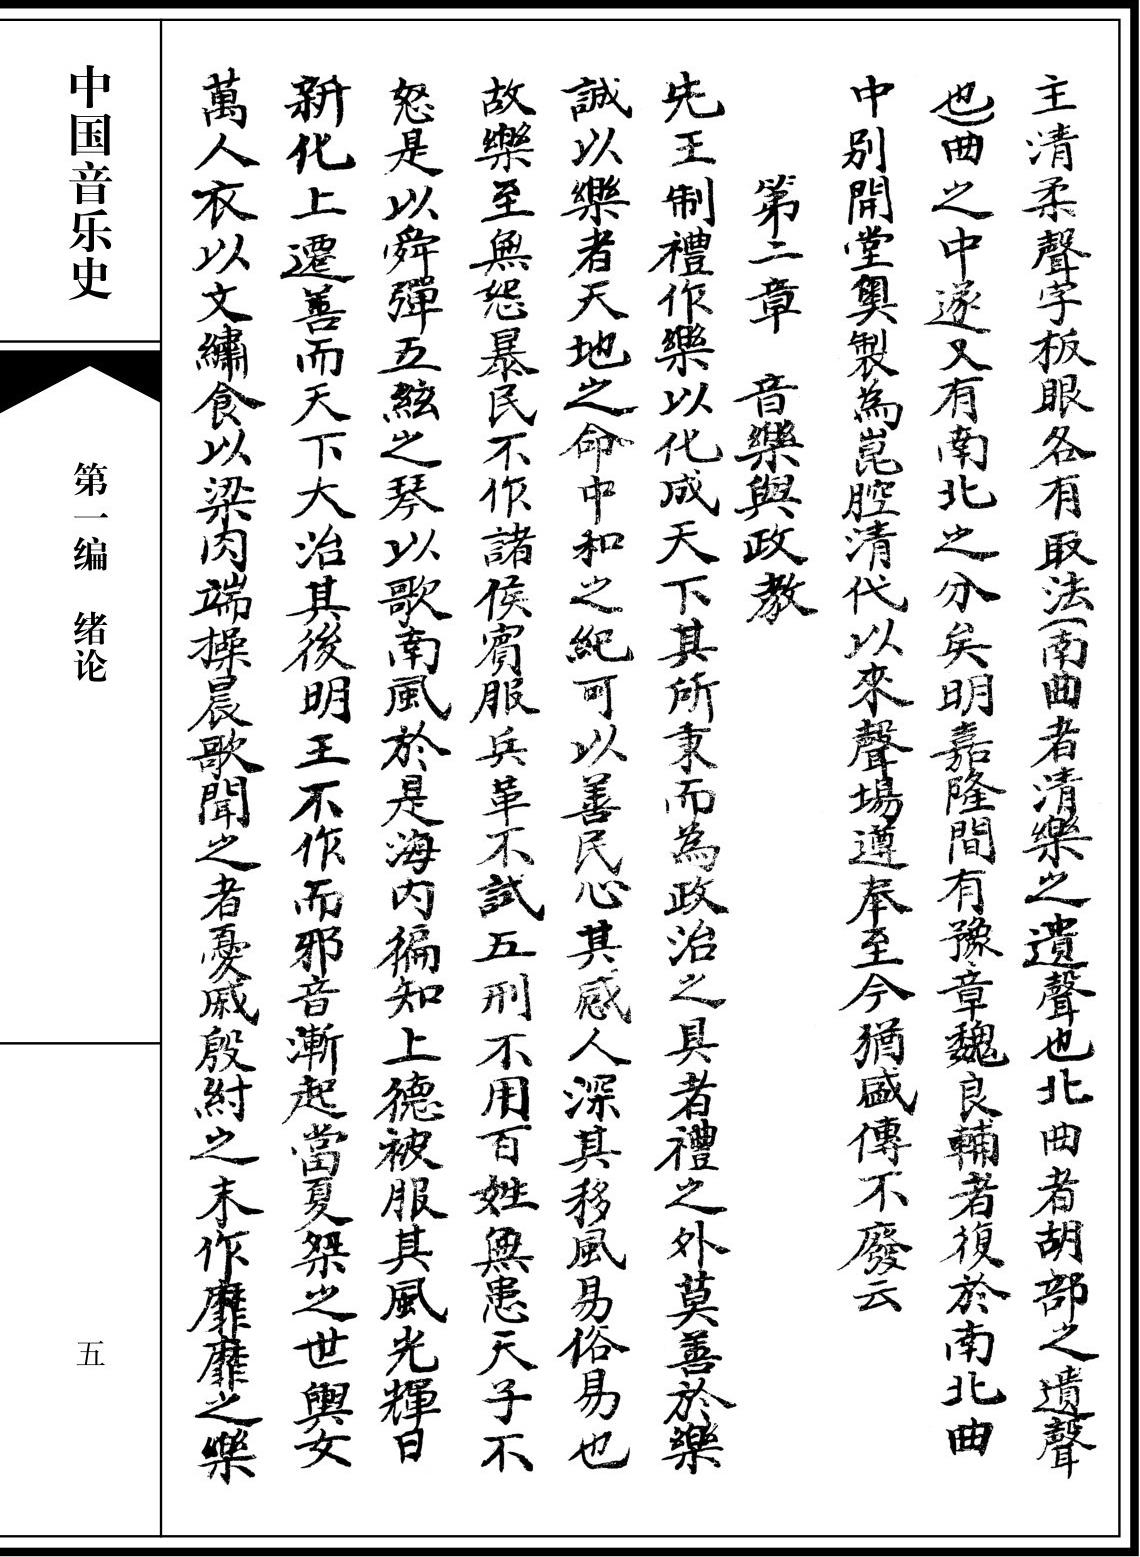 主清柔聲字板眼各有取法南曲者清樂之遺聲也北曲者胡部之遺聲
也曲之中遂又有南北之分矣明嘉隆間有豫章魏良輔者復於南北曲
中別開堂奧製為崑腔清代以來聲場遵奉至今猶盛傳不廢云
第二章　音樂與政教
先王制禮作樂以化成天下其所秉而為政治之具者禮之外莫善於樂
誠以樂者天地之命中和之紀可以善民心其感人深其移風易俗易也
故樂至無怨暴民不作諸侯賓服兵革不試五刑不用百姓無患天子不
怒是以舜彈五絃之琴以歌南風於是海內徧知上德被服其風光輝日
新化上遷善而天下大治其後明王不作而邪音漸起當夏桀之世輿女
萬人衣以文繡食以粱肉端操晨歌聞之者憂戚殷紂之末作靡靡之樂
中国音乐史
第一编　绪论
五